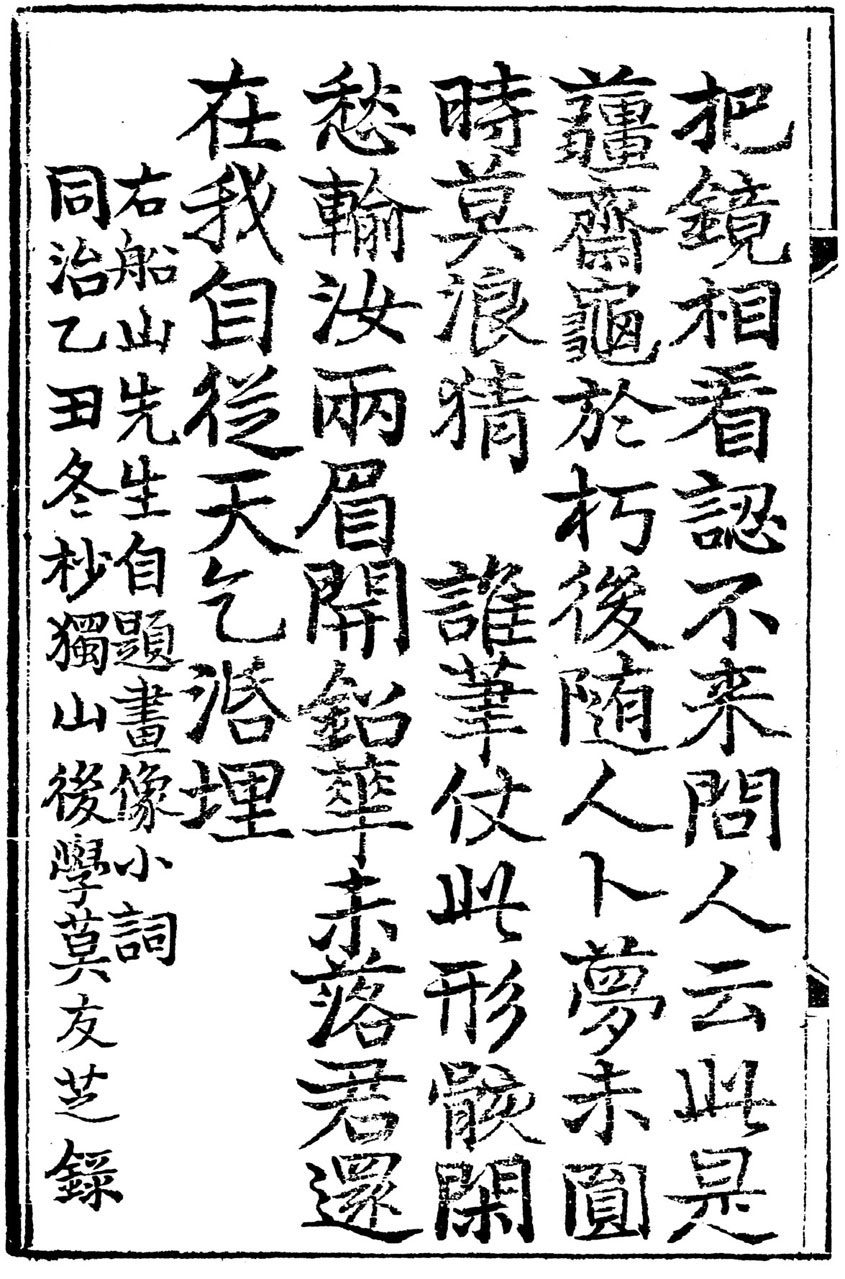 把鏡相看認不来問人云此是
薑齋龜於朽後随人卜夢未圓
時莫浪猜　誰筆仗此形骸閑
愁輸汝兩眉開鉛華未落君還
在我自從天乞活埋
右船山先生自題畫像小詞
同治乙丑冬杪獨山後學莫友芝録